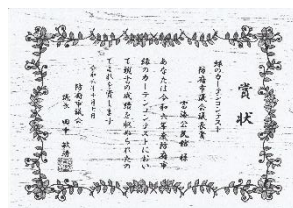 賞状
緑のカーテンコンテスト
防府市議会議長賞
宮海公民館 様
あなたは令和六年度防府市
緑のカーテンコンテストにおい
て頭書の成績を収められたの
でこれを賞します
令和六年十月七日
防府市議会
議長 田中敏靖